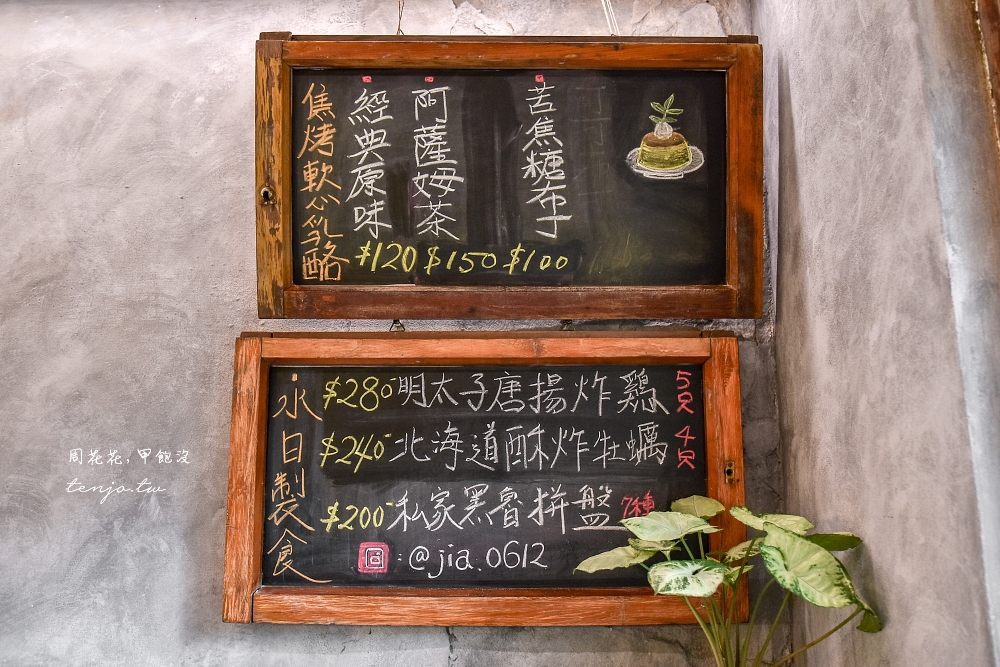 焦烤軟心乳酪
經典原味
$120
阿薩姆茶
$150
苦焦糖布丁
$100
永日製食
$280 明太子唐揚炸鷄 5只
$240 北海道酥炸牡蠣 4只
$200 私家黑魯拼盤 7種
:@jia.0612
周花花,甲飽沒
tenjo.tw